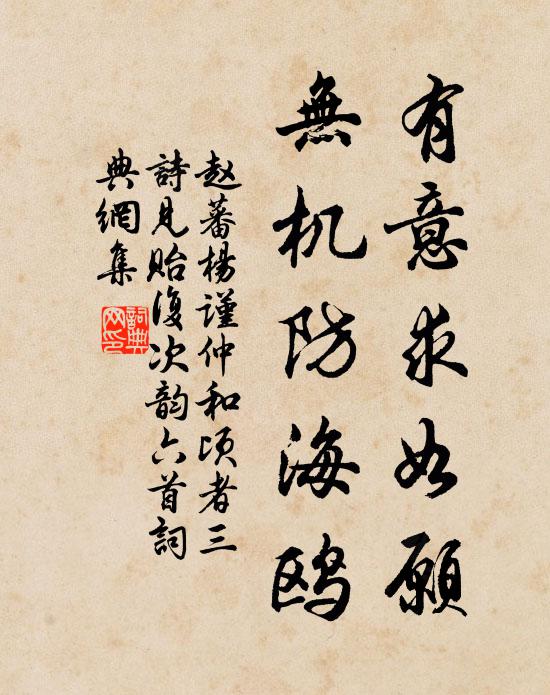 有意求如願
無机防海鸥
赵蕃楊谨仲和頃者三
詩見貽復次韵六首詞
典網集
詞典
网印